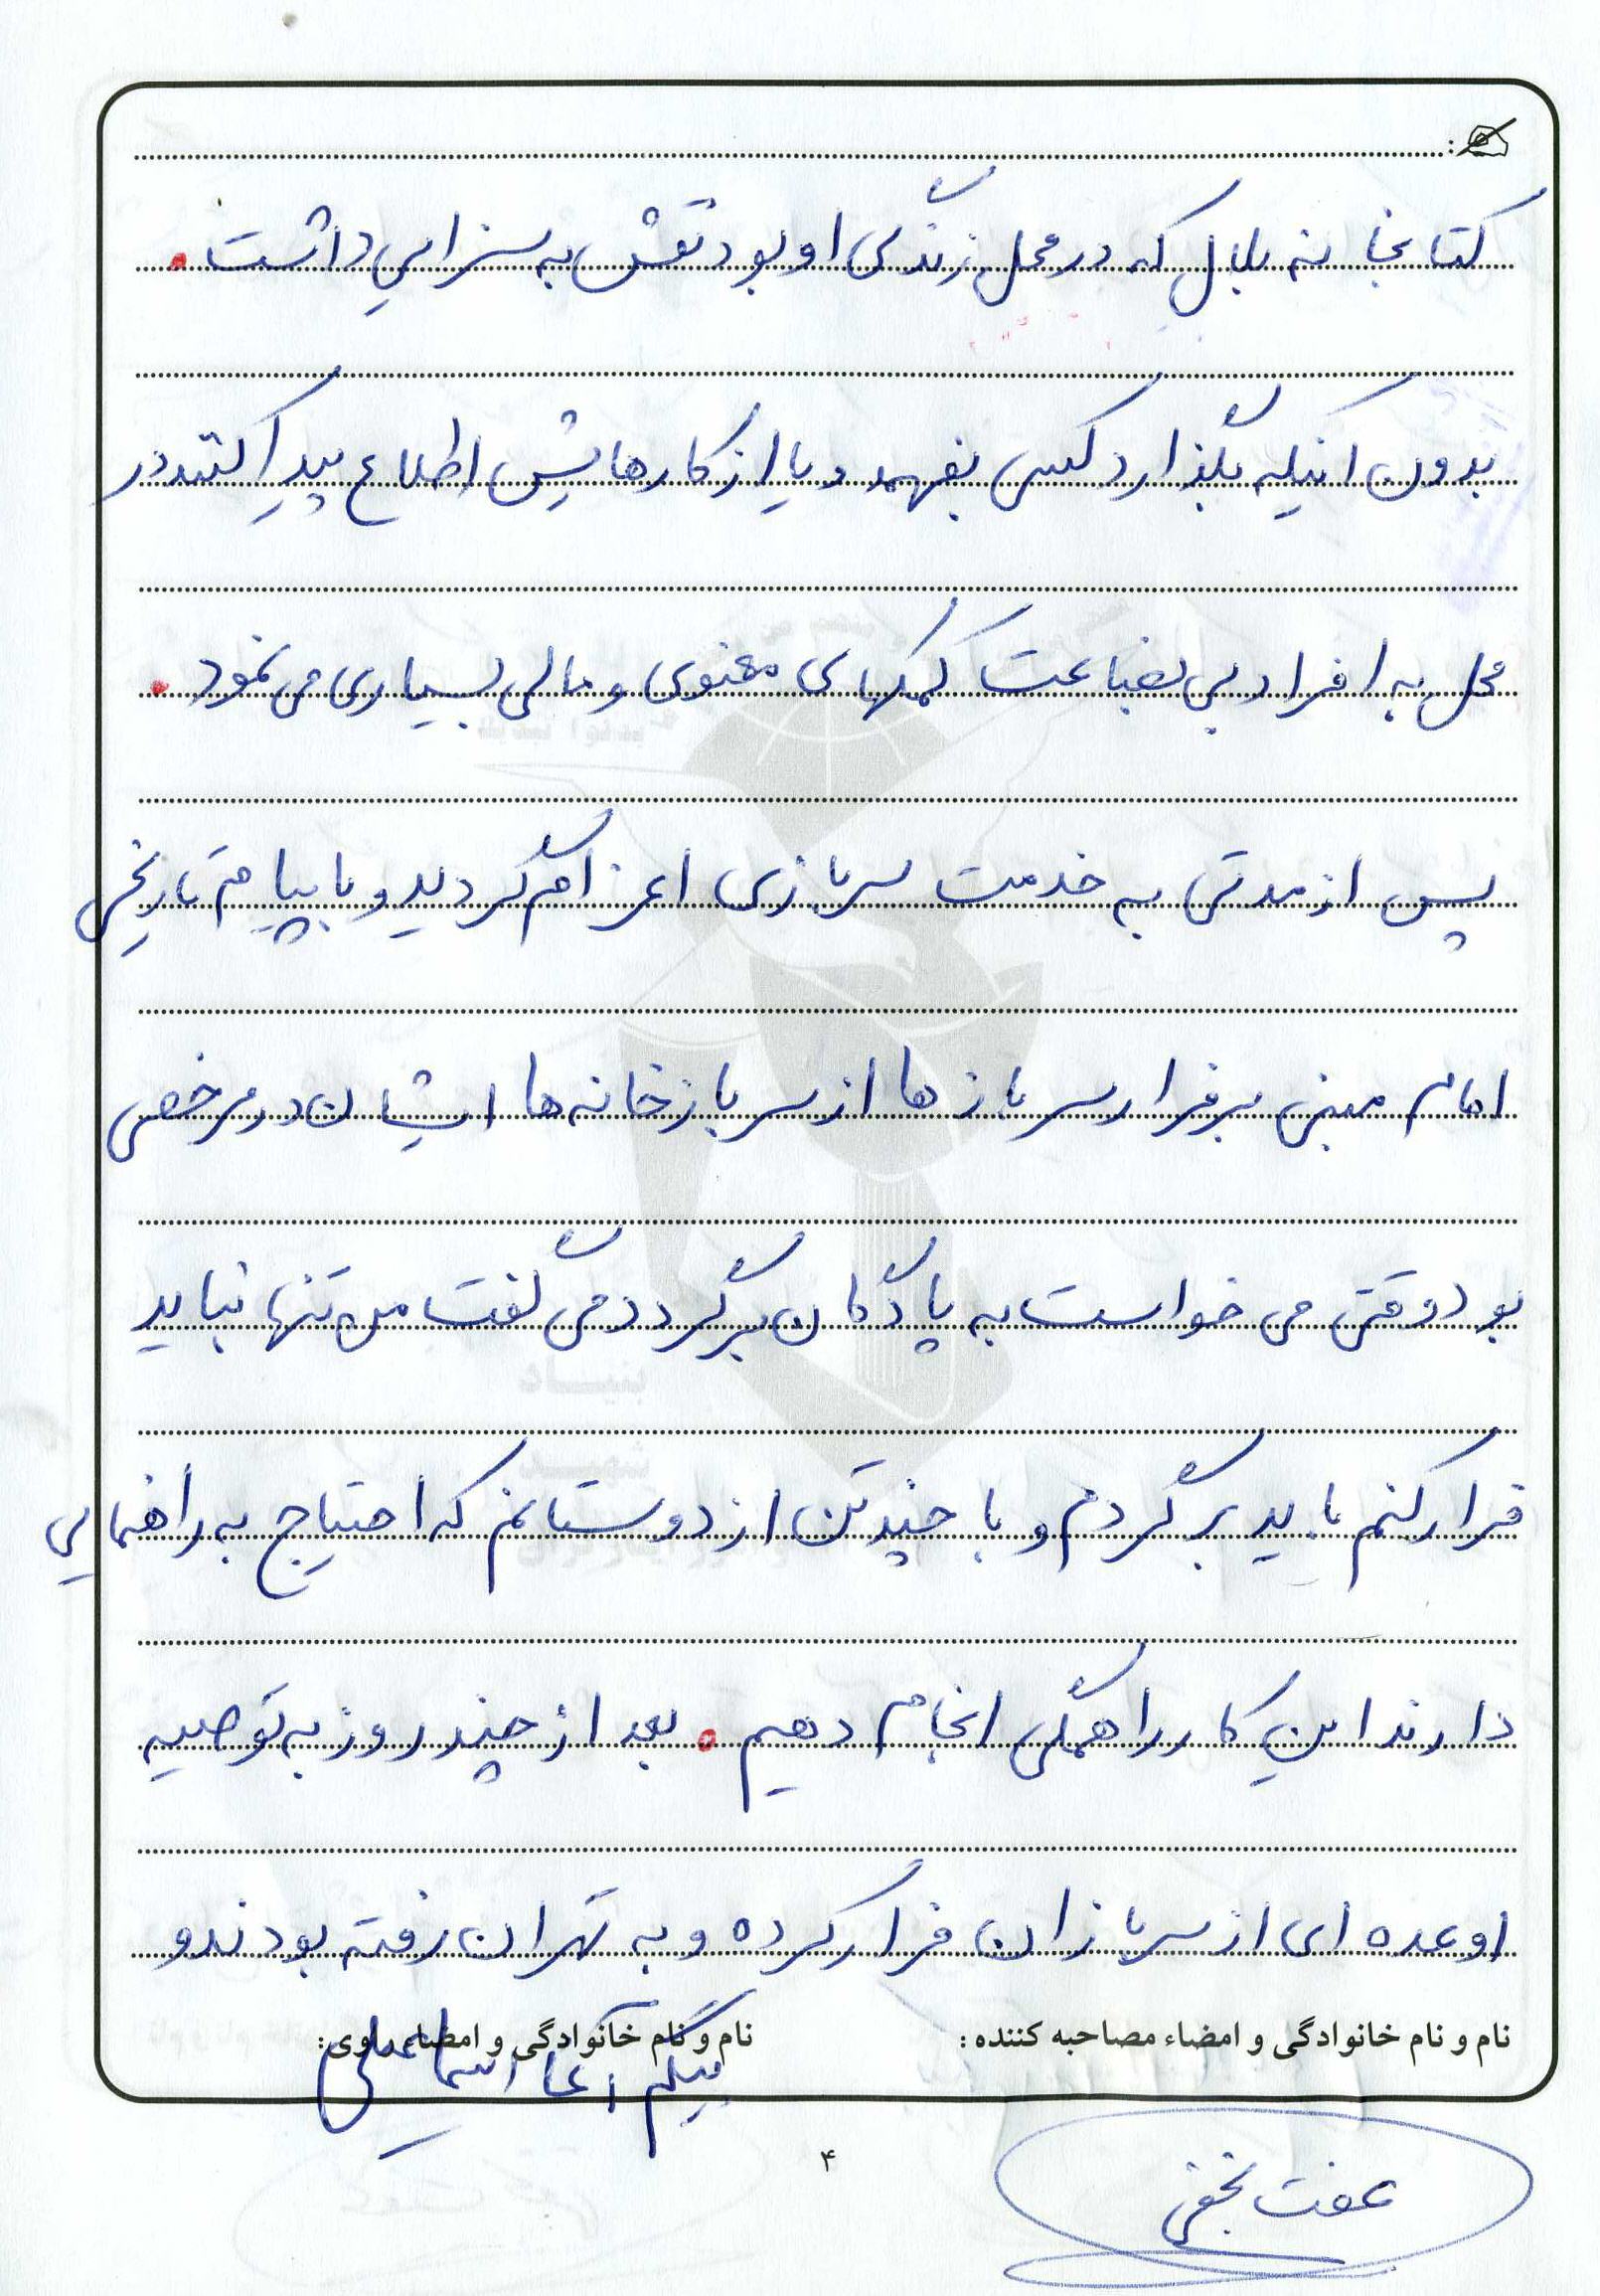 کتابخانه بلال که در محل زندگی او بود نقش به سزایی داشت.
بدون اینکه بگذارد کسی بفهمد و یا از کارهایش اطلاع پیدا کند در
محل به افراد بی بضاعت کمکهای معنوی و مالی بسیاری می نمود.
پس از مدتی به خدمت سربازی اعزام گردید و با پیام تاریخی
امام مبنی بر فرار سربازها از سربازخانه‌ها ایشان در مرخصی
بود وقتی می خواست به پادگان برگردد می گفت من تنها نباید
فرار کنم باید برگردم و با چند تن از دوستانم که احتیاج به راهنمایی
دارند این کار را همگی انجام دهیم. بعد از چند روز به توصیه
او عده ای از سربازان فرار کرده و به تهران رفته بودند و
نام و نام خانوادگی و امضاء مصاحبه کننده: نام و نام خانوادگی و امضاء راوی:
بیگم آغا اسماعیلی
۴
عفت نجفی